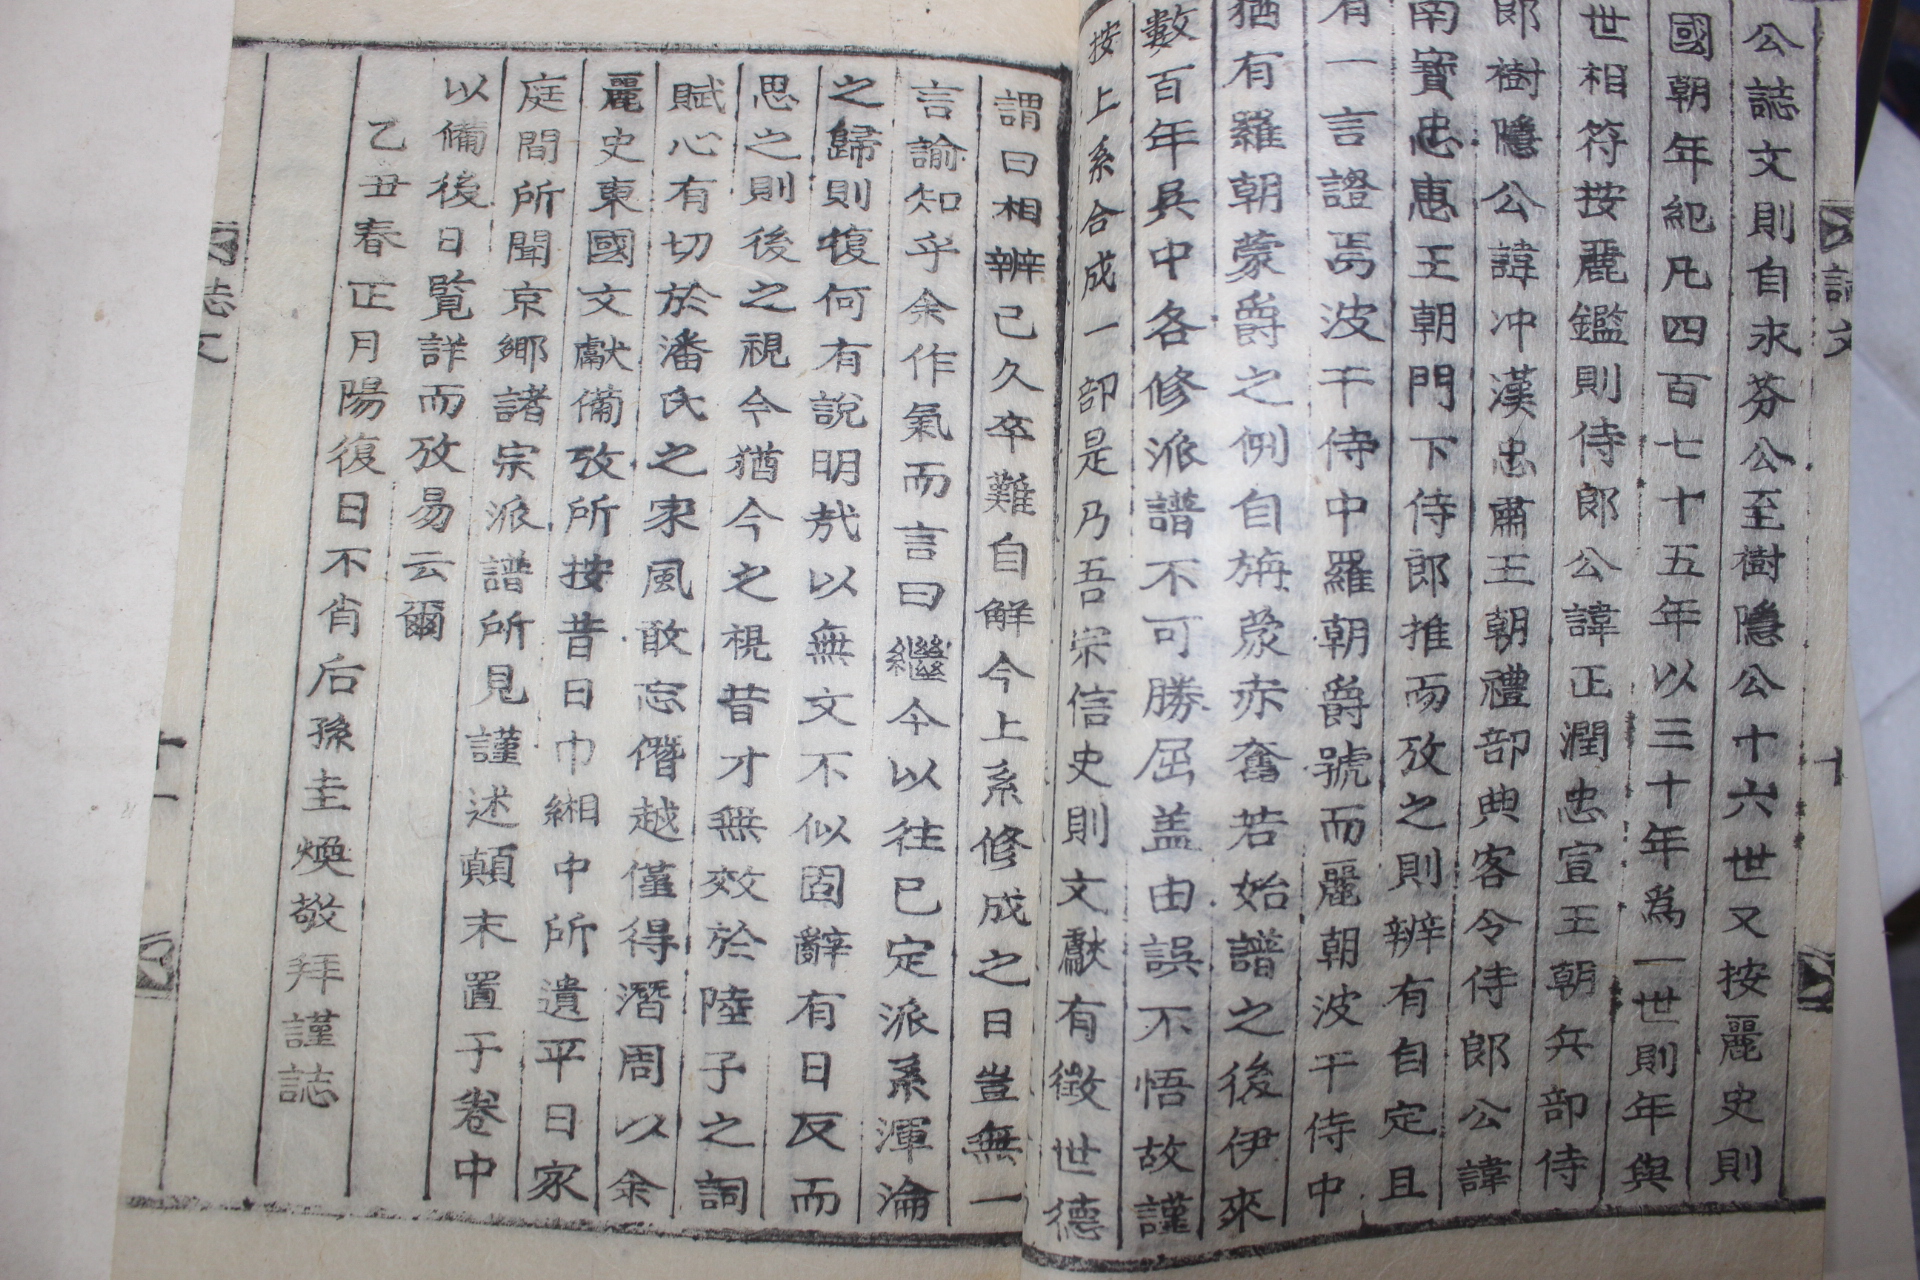 公誌文則自求芬公至樹隱公十六世又按麗史則
國朝年紀凡四百七十五年以三十年為一世則年與
世相符按麗鑑則侍郎公諱正潤忠宣王朝兵部侍
郎樹隱公諱冲漢忠肅王朝禮部典客令侍郎公諱
南寶忠惠王朝門下侍郎推而攷之則辨有自定且
有一言證焉波干侍中羅朝爵號而麗朝波干侍中
猶有羅朝蒙爵之例自旃蒙赤奮若始譜之後伊來
數百年兵中各修派譜不可勝屈盖由誤不悟故謹
按上系合成一部是乃吾宗信史則文獻有徵世德
謂曰相辨已久卒難自解今上系修成之日豈無一
言諭知乎余作氣而言曰繼今以徃已定派系渾淪
之歸則復何有說明㢤以無文不似固辭有日反而
思之則後之視今猶今之視昔才無效於陸子之詞
賦心有切於潘氏之家風敢忘僭越僅得潛周以余
麗史東國文獻備攷所按昔日巾緗中所遺平日家
庭間所聞京鄉諸宗派譜所見謹述顛末置于卷中
以備後日覽詳而攷易云爾
乙丑春正月陽復日不肖后孫圭煥敬拜謹誌
誌文
十
誌文
十一